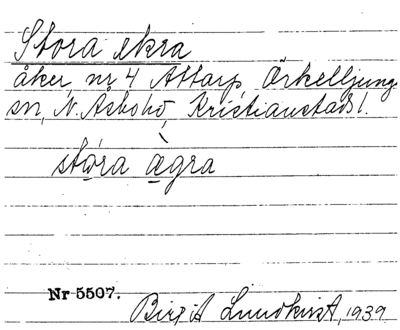 Stora ekra
åker nr 4 Attarp, Örkelljunga
sn, N. Åsbohd, Kristianstads l.
stora ægra
Nr 5507.
Birgit Lundkvist, 1939